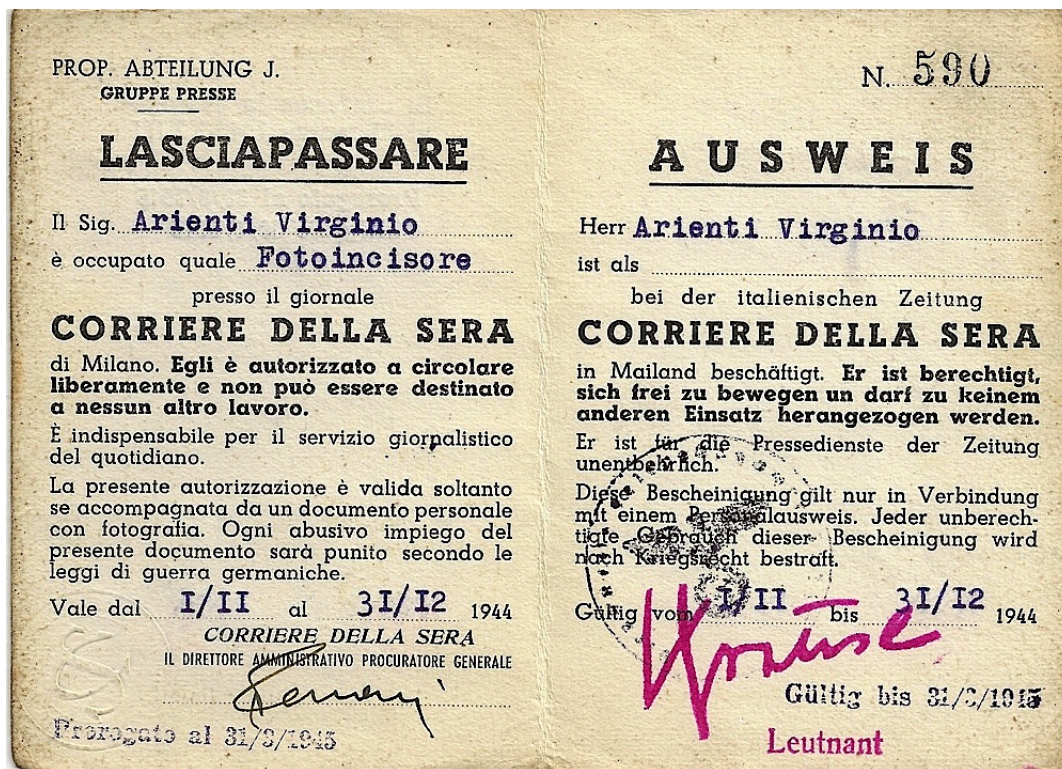 PROP. ABTEILUNG J.
GRUPPE PRESSE
LASCIAPASSARE
Il Sig. Arienti Virginio
è occupato quale Fotoincisore
presso il giornale
CORRIERE DELLA SERA
di Milano. Egli è autorizzato a circolare
liberamente e non può essere destinato
a nessun altro lavoro.
È indispensabile per il servizio giornalistico
del quotidiano.
La presente autorizzazione è valida soltanto
se accompagnata da un documento personale
con fotografia. Ogni abusivo impiego del
presente documento sarà punito secondo le
leggi di guerra germaniche.
Vale dal I/II al 31/I2 1944
CORRIERE DELLA SERA
IL DIRETTORE AMMINISTRATIVO PROCURATORE GENERALE
Prorogato al 31/3/1945
N. 590
AUSWEIS
Herr Arienti Virginio
ist als
bei der italienischen Zeitung
CORRIERE DELLA SERA
in Mailand beschäftigt. Er ist berechtigt,
sich frei zu bewegen un darf zu keinem
anderen Einsatz herangezogen werden.
Er ist für die Pressedienste der Zeitung
unentbehrlich.
Diese Bescheinigung gilt nur in Verbindung
mit einem Personalausweis. Jeder unberech-
tigte Gebrauch dieser Bescheinigung wird
nach Kriegsrecht bestraft.
Gültig vom I/II bis 31/I2 1944
Krause
Gültig bis 31/3/1945
Leutnant